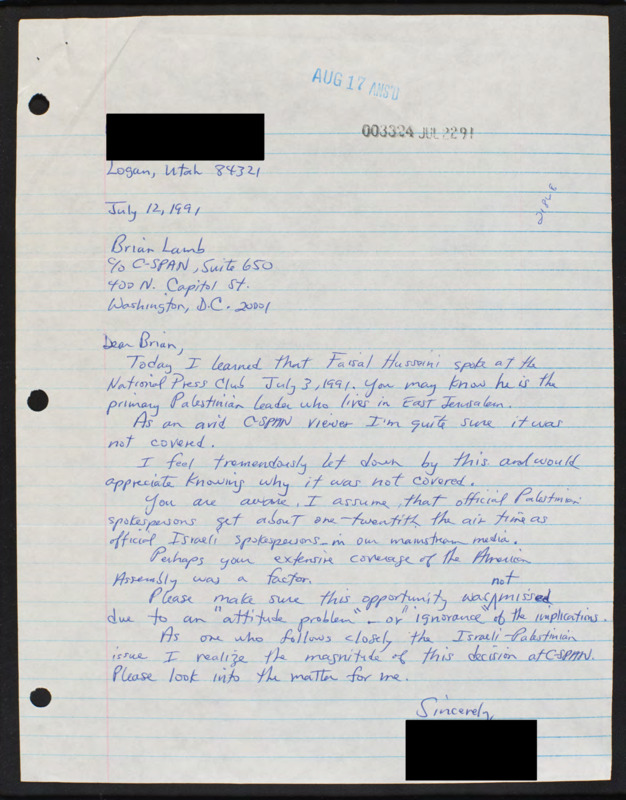 AUG 17 ANS'D
003324 JUL 22 91
Logan, Utah 84321
July 12, 1991
Brian Lamb
c/o C-SPAN, Suite 650
400 N. Capitol St.
Washington, D.C. 20001
Dear Brian,
Today I learned that Faisal Hussaini spoke at the
National Press Club July 3, 1991. You may know he is the
primary Palestinian leader who lives in East Jerusalem.
As an avid C-SPAN viewer I'm quite sure it was
not covered.
I feel tremendously let down by this and would
appreciate knowing why it was not covered.
You are aware, I assume, that official Palestinian
spokespersons get about one-twentith the air time as
official Israeli spokespersons in our mainstream media.
Perhaps your extensive coverage of the American
Assembly was a factor.
not
Please make sure this opportunity was missed
due to an "attitude problem" - or "ignorance" of the implications.
As one who follows closely the Israeli-Palestinian
issue I realize the magnitude of this decision at C-SPAN.
Please look into the matter for me.
Sincerely,